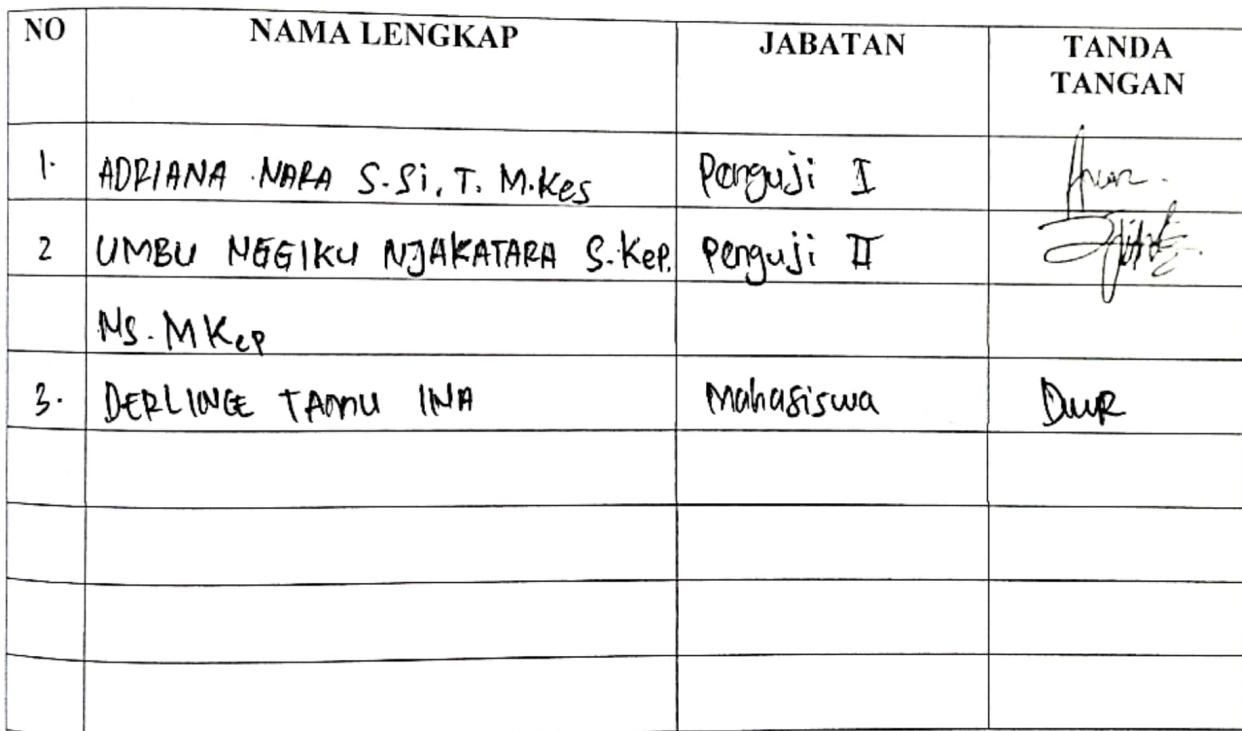 NO NAMA LENGKAP JABATAN TANDA TANGAN
1. ADRIANA NARA S.Si, T. M.Kes Penguji I
2 UMBU NGGIKU NJAKATARA S.Kep. Penguji II
Ns. MKep
3. DERLINCE TAMU INA Mahasiswa